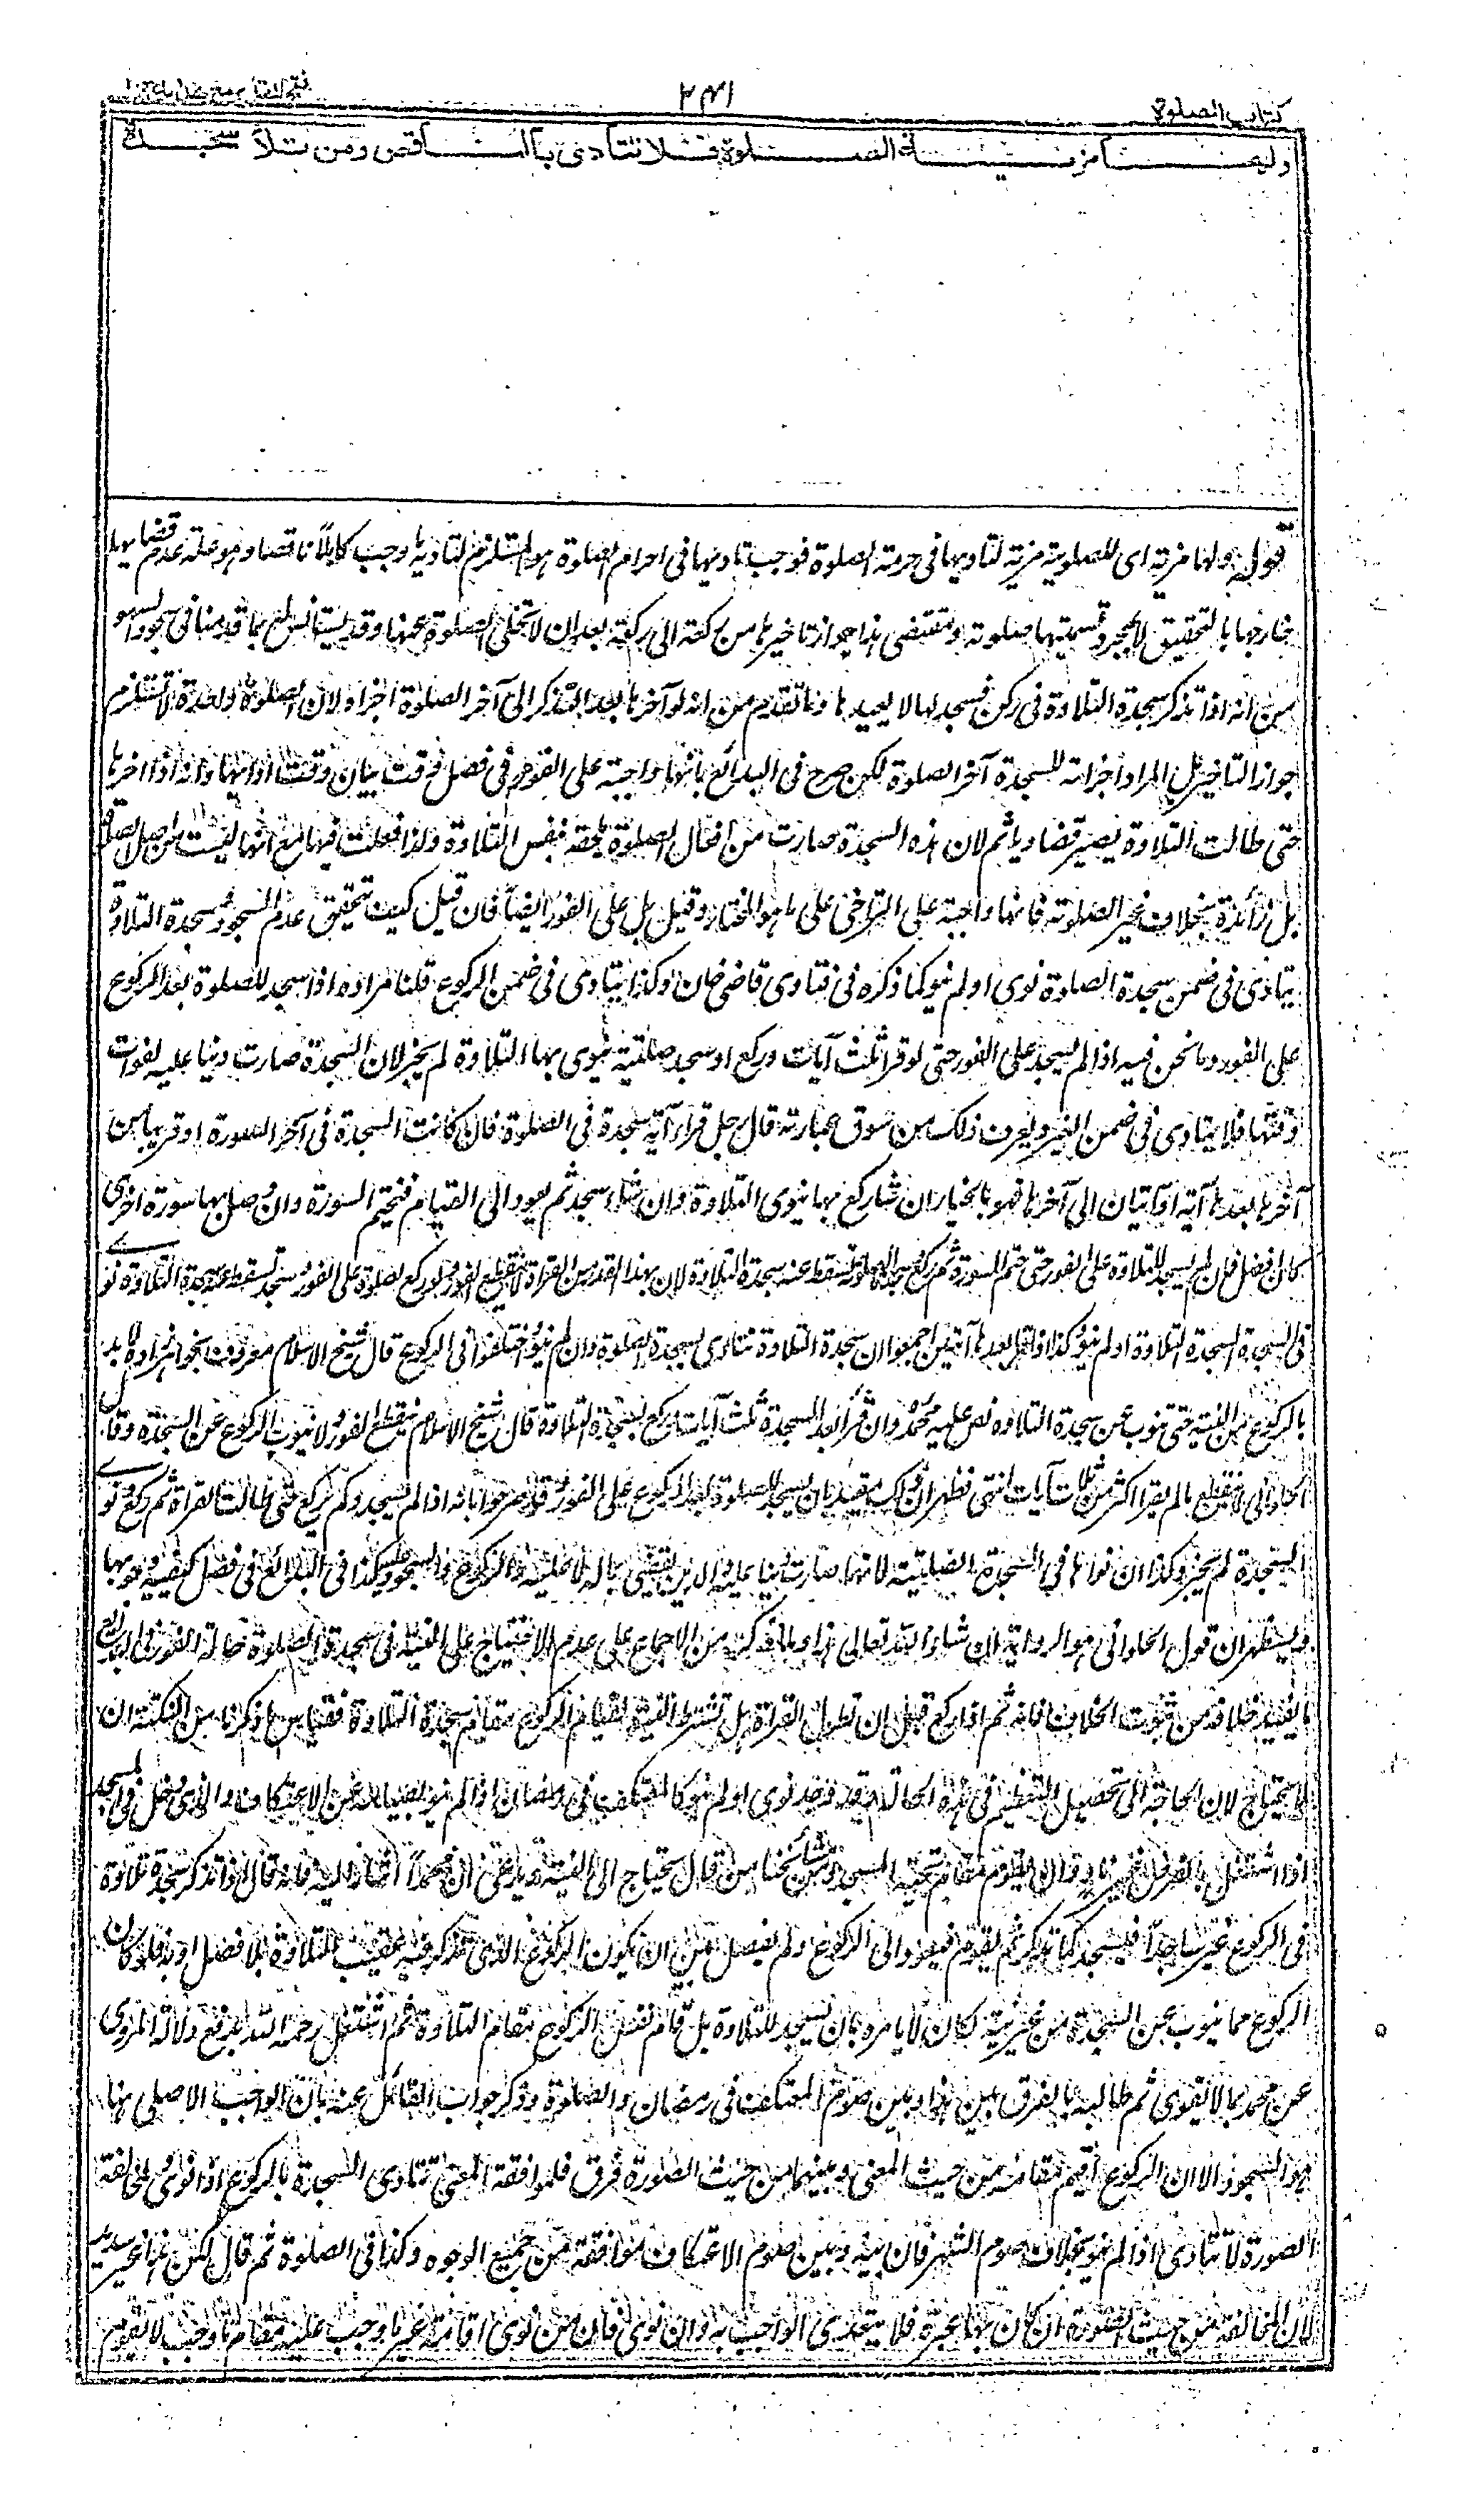 كتاب الصلوة
٢٤١
فتح القدير مع هدايه
ولها مزية الصلوة فلا تتأدى بالناقص ومن تلا سجدة
قوله ولها مزية اى للصلوتية مزية لتاديها فى حرمة الصلوة فوجب تاديها فى احرام الصلوة هو المستلزم لتاديه ما وجب كاملا ناقصا وهو علة عدم قضائها
خارجها بالتحقيق لا مجرد تسميتها صلوتة ومقتضى هذا جواز تاخيرها من ركعة الى ركعة بعد ان لا تخلى الصلوة عنها وقد يستانس له بما قدمنا فى سجود السهو
من انه اذا تذكر سجدة التلاوة فى ركن فسجد لها لا يعيده وما تقدم من انه لو آخرها بعد التذكر الى آخر الصلوة اجزاه لان الصلوة واحدة لا تستلزم
جواز التاخير بل المراد اجزاته للسجدة آخر الصلوة لكن صرح فى البدائع بانها واجبة على الفور فى فصل وقت بيان وقت ادائها وانه اذا اخرها
حتى طالت التلاوة يصير قضاء وياثم لان هذه السجدة صارت من افعال الصلوة ملحقة بنفس التلاوة ولذا فعلت فيها مع انها ليست من اصل الصلوة
بل زائدة بخلاف غير الصلوتة فانها واجبة على التراخى على ما هو المختار وقيل بل على الفور ايضا فان قيل كيف تحقيق عدم السجود وسجدة التلاوة
يتادى فى ضمن سجدة الصلوة نوى او لم ينو كما ذكره فى فتاوى قاضى خان وكذا يتادى فى ضمن الركوع قلنا مراده اذا سجد للصلوة بعد الركوع
على الفور وما نحن فيه اذا لم يسجد على الفور حتى لو قرا ثلث آيات وركع او سجد صلبية ينوى بها التلاوة لم يجز لان السجدة صارت دينا عليه لفوات
وقتها فلا يتادى فى ضمن الغير ويعرف ذلك من سوق عبارته قال رجل قرا آية سجدة فى الصلوة فان كانت السجدة فى آخر السورة او قريبا من
آخرها بعدها آية او آيتان الى آخرها فهو بالخيار ان شاء ركع بها ينوى التلاوة وان شاء سجد ثم يعود الى القيام فيختم السورة وان وصل بها سورة اخرى
كان افضل فان لم يسجد للتلاوة على الفور حتى ختم السورة ثم ركع وسجد لصلوته تسقط عنه سجدة التلاوة لان بهذا القدر من القراءة لا ينقطع الفور ولو ركع لصلوة على الفور سجد تسقط عنه سجدة التلاوة نوى
فى السجدة السجدة التلاوة او لم ينو وكذا اذا قرا بعدها آيتين اجمعوا ان سجدة التلاوة تتادى بسجدة الصلوة وان لم ينو واختلفوا فى الركوع قال شيخ الاسلام معروف بخواهر زاده لا بد
بالركوع من النية حتى تنوب عن سجدة التلاوة نص عليه محمد وان قرا بعد السجدة ثلث آيات وركع لسجدة التلاوة قال شيخ الاسلام ينقطع الفور ولا ينوب الركوع عن السجدة وقال
الحلوانى لا ينقطع ما لم يقرا اكثر من ثلاث آيات انتهى فظهر ان ذلك مقيد بان يسجد للصلوة بعد الركوع على الفور وقد صرحوا بانه اذا لم يسجد ولم يركع حتى طالت القراة ثم ركع ونوى
السجدة لم يجز وكذا ان نواها فى السجدة الصلبية لانها صارت دينا عليه والدين يقضى بما له لا بما عليه والركوع والسجود عليه كذا فى البدائع فى فصل كيفية وجوبها
ويستظهر ان قول الحلوانى هو الرواية ان شاء الله تعالى هذا وما ذكر من الاجماع على عدم الاحتياج على النية فى سجدة الصلوة حالة الفور فى البدائع
ما يفيد خلافه من ثبوت الخلاف فانه ثم اذا ركع قبل ان تطول القراة هل تشترط النية لقيام الركوع مقام سجدة التلاوة فقياس ما ذكرنا من النكتة ان
لا يحتاج لان الحاجة الى تحصيل التعظيم فى هذه الحالة وقد وجد نوى او لم ينو كالمعتكف فى رمضان اذا لم ينو بصيامه عن الاعتكاف والذى دخل فى المسجد
اذا اشتغل بالفرض غير ناو ان يقوم مقام تحية المسجد ومن مشائخنا من قال يحتاج الى النية ويدعى ان محمدا اشار اليه فانه قال اذا تذكر سجدة تلاوة
فى الركوع يخر ساجدا فيسجد كما تذكر ثم يقوم فيعود الى الركوع ولم يفصل بين ان يكون الركوع الذى تذكر فيه عقيب التلاوة بلا فصل او به فلو كان
الركوع مما ينوب عن السجدة من غير نية لكان لا يامره بان يسجد للتلاوة بل قام نفس الركوع مقام التلاوة ثم اشتغل رحمه الله بدفع دلالة المروى
عن محمد بما لا يقوى ثم طالبه بالفرق بين هذا وبين صوم المعتكف فى رمضان والصلوة وذكر جواب القائل عنه بان الواجب الاصلى هنا
هو السجود الا ان الركوع اقيم مقامه من حيث المعنى وبينهما من حيث الصورة فرق فلموافقة المعنى تتادى السجدة بالركوع اذا نوى ولمخالفة
الصورة لا تتادى اذا لم ينو بخلاف صوم الشهر فان بينه وبين صوم الاعتكاف موافقة من جميع الوجوه وكذا فى الصلوة ثم قال لكن هذا غير سديد
لان المخالفة من حيث الصورة ان كان بها عبرة فلا يتادى الواجب به وان نوى فان من نوى اقامة غير ما وجب عليه مقام ما وجب لا يقوم